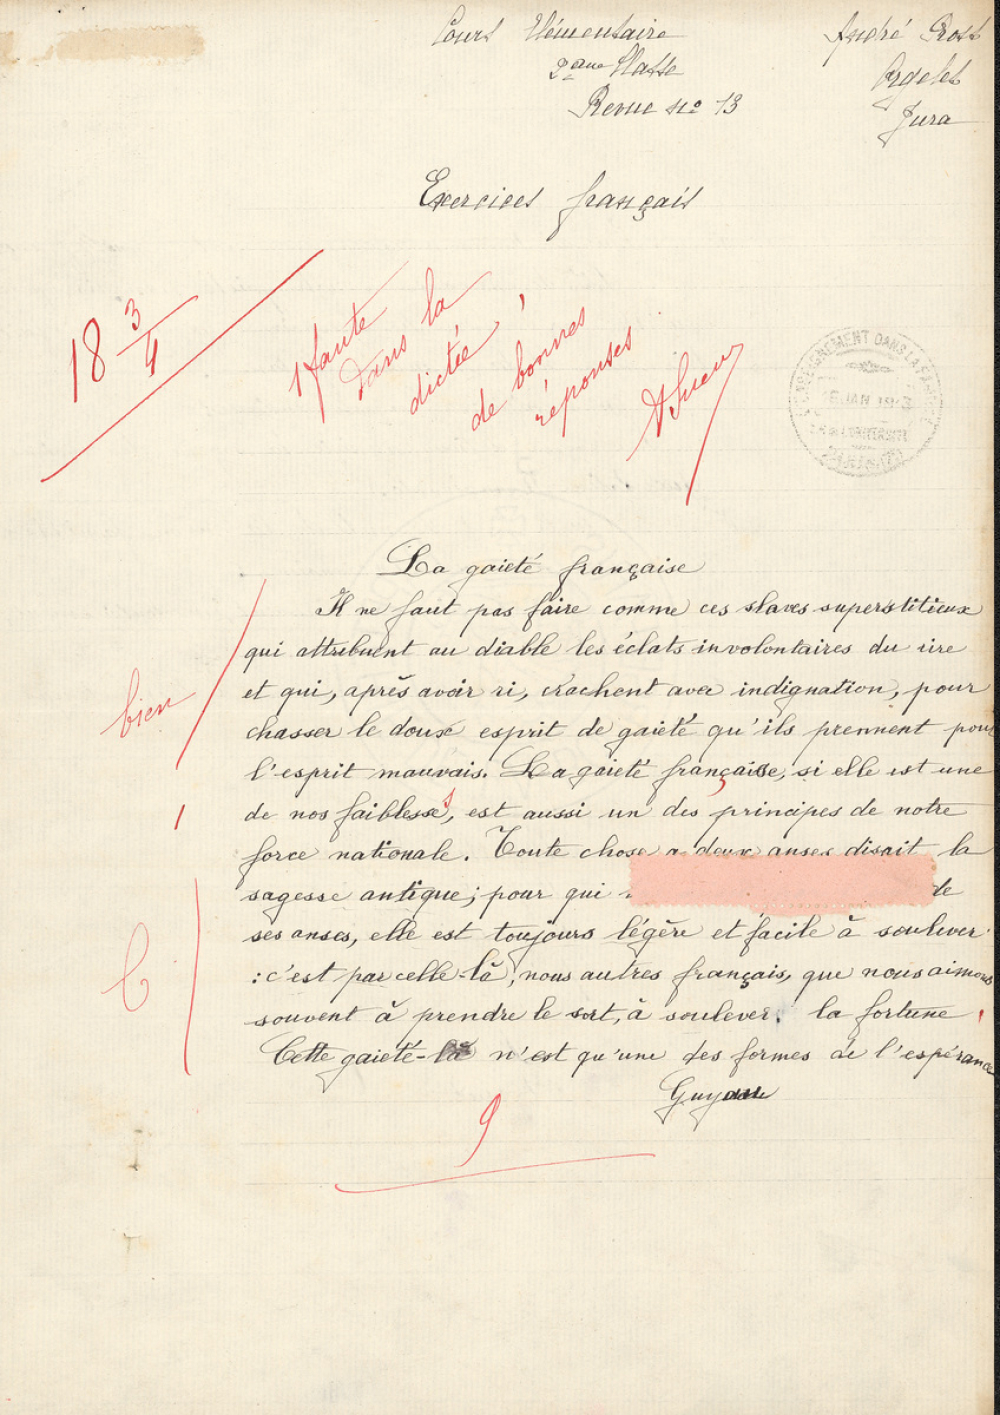 Cours Elémentaire
2ème Classe
Revue nº 13
André Prost
Orgelet
Jura
Exercices français
18 3/4
1 faute
dans la
dictée,
de bonnes
réponses
ENSEIGNEMENT DANS LA FAMILLE
JAN
La gaieté française
Il ne faut pas faire comme ces slaves superstitieux
qui attribuent au diable les éclats involontaires du rire
et qui, après avoir ri, crachent avec indignation, pour
chasser le doux esprit de gaieté qu'ils prennent pour
l'esprit mauvais. La gaieté française, si elle est une
de nos faiblesses, est aussi un des principes de notre
force nationale. Toute chose a deux anses disait la
sagesse antique; pour qui de
ses anses, elle est toujours légère et facile à soulever
: c'est par celle-là, nous autres français, que nous aimons
souvent à prendre le sort, à soulever. la fortune
Cette gaieté-là n'est qu'une des formes de l'espérance
Guyau
bien
1
9